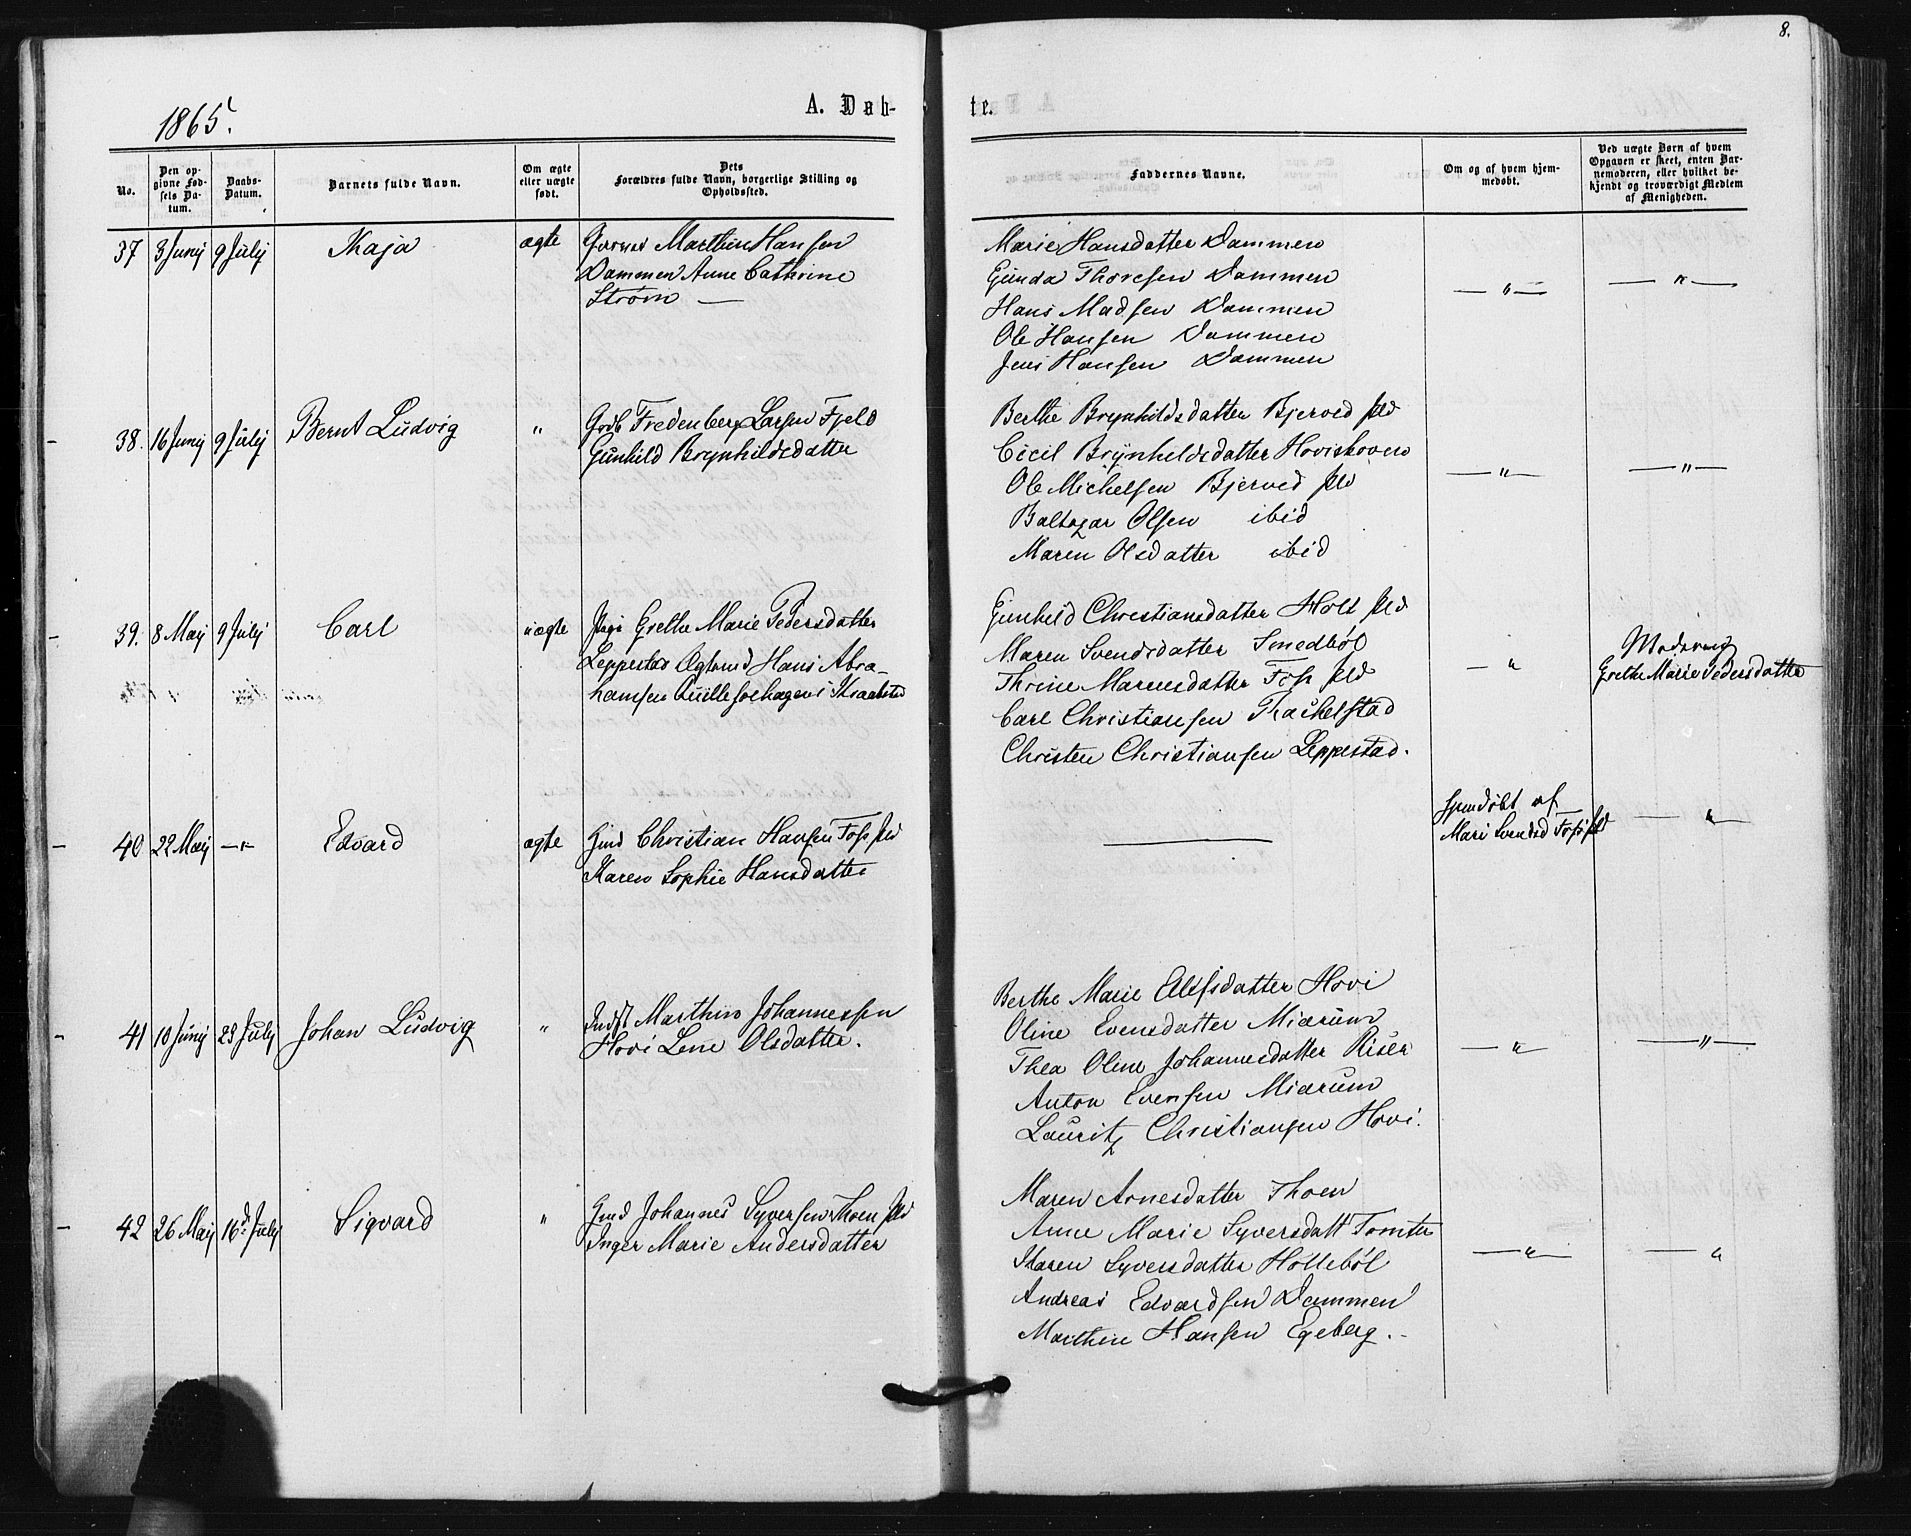 8.
1865.
A. Døb-
te.
No.
Den op-
givne Fød-
sels Da-
tum.
Daabs-
Datum.
Barnets fulde Navn.
Om ægte
eller uægte
født.
Dets
Forældres fulde Navn, borgerlige Stilling og
Opholdssted.
Faddernes Navne.
Om og af hvem hjem-
medøbt.
Ved uægte Børn af hvem
Opgaven er skeet, enten Bar-
nemoderen, eller hvilket be-
kjendt og troværdigt Medlem
af Menigheden.
37 3 Junij 9 Julij Kaja ægte Marthin Hansen
Dammen Anne Cathrine
Strøm —
Marie Hansdatter Dammen
Gunda Thoresen Dammen
Hans Madsen Dammen
Ole Hansen Dammen
Jens Hansen Dammen
— " —
— " —
38. 16 Junij 9 Julij Bernt Ludvig " Gdb Fredenberg Larsen Fjeld
Gunhild Brynhildsdatter
Berthe Brynhildsdatter Bjerved Eld
Cicil Brynhildsdatter Hoviskoven
Ole Michelsen Bjerved Eld
Baltazar Olsen ibid
Maren Olsdatter ibid
— " —
— " —
39. 8 Maij 9 Julij Carl uægte Pige Grethe Marie Pedersdatter
Leppestad Ogl Hans Abra-
hamsen i Kraakstad
Gunhild Christiansdatter Holt Eld
Maren Svendsdatter Smedbøl
Thrine Mariusdatter Foss Eld
Carl Christiansen Trachelstad
Christen Christiansen Leppestad.
— "
Moderen
Grethe Marie Pedersdatter
40 22 Maij — " — Edvard ægte Gmd Christian Hansen Foss Eld
Karen Sophie Hansdatter
Hjemdøbt af
Mari Svendsd Foss Eld
— "
41 10 Junij 23 Julij Johan Ludvig " Indst Marthin Johannessen
Hovi Lene Olsdatter.
Berthe Marie Alfsdatter Hovi
Oline Evensdatter Miærum
Thea Oline Johannesdatter Riser
Anton Evensen Miærum
Lauritz Christiansen Hovi.
— " —
— " —
42 26 Maij 16de Julij Sigvard " Gmd Johannes Syversen Thoen Eld
Inger Marie Andersdatter
Maren Arnesdatter Thoen
Anne Marie Syversdatt Tomter
Karen Syversdatter Høllebøl
Andreas Edvardsen Dammen
Marthin Hansen Egeberg. -
— " —
— "